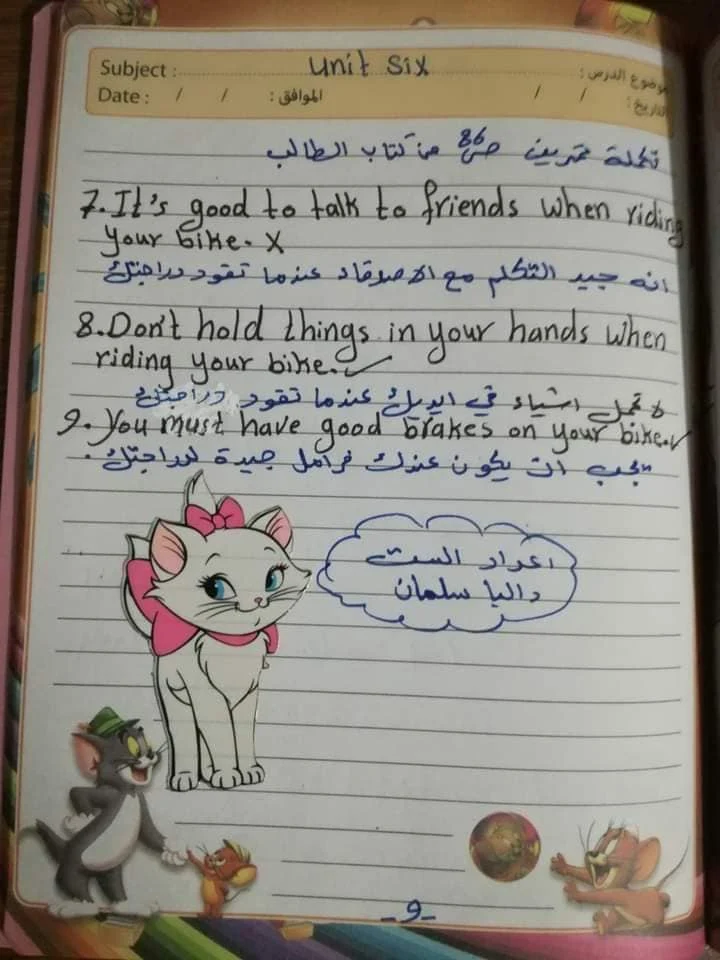 Subject : unit six موضوع الدرس :
Date : / / الموافق : / / التاريخ :
تكملة تمرين ص86 من كتاب الطالب
7. It's good to talk to friends when riding
your bike. X
انه جيد التكلم مع الاصدقاء عندما تقود دراجتك
8. Don't hold things in your hands when
riding your bike. ✓
لا تحمل اشياء في ايديك عندما تقود دراجتك
9. You must have good brakes on your bike. ✓
يجب ان يكون عندك فرامل جيدة لدراجتك .
اعداد الست
داليا سلمان
-9-